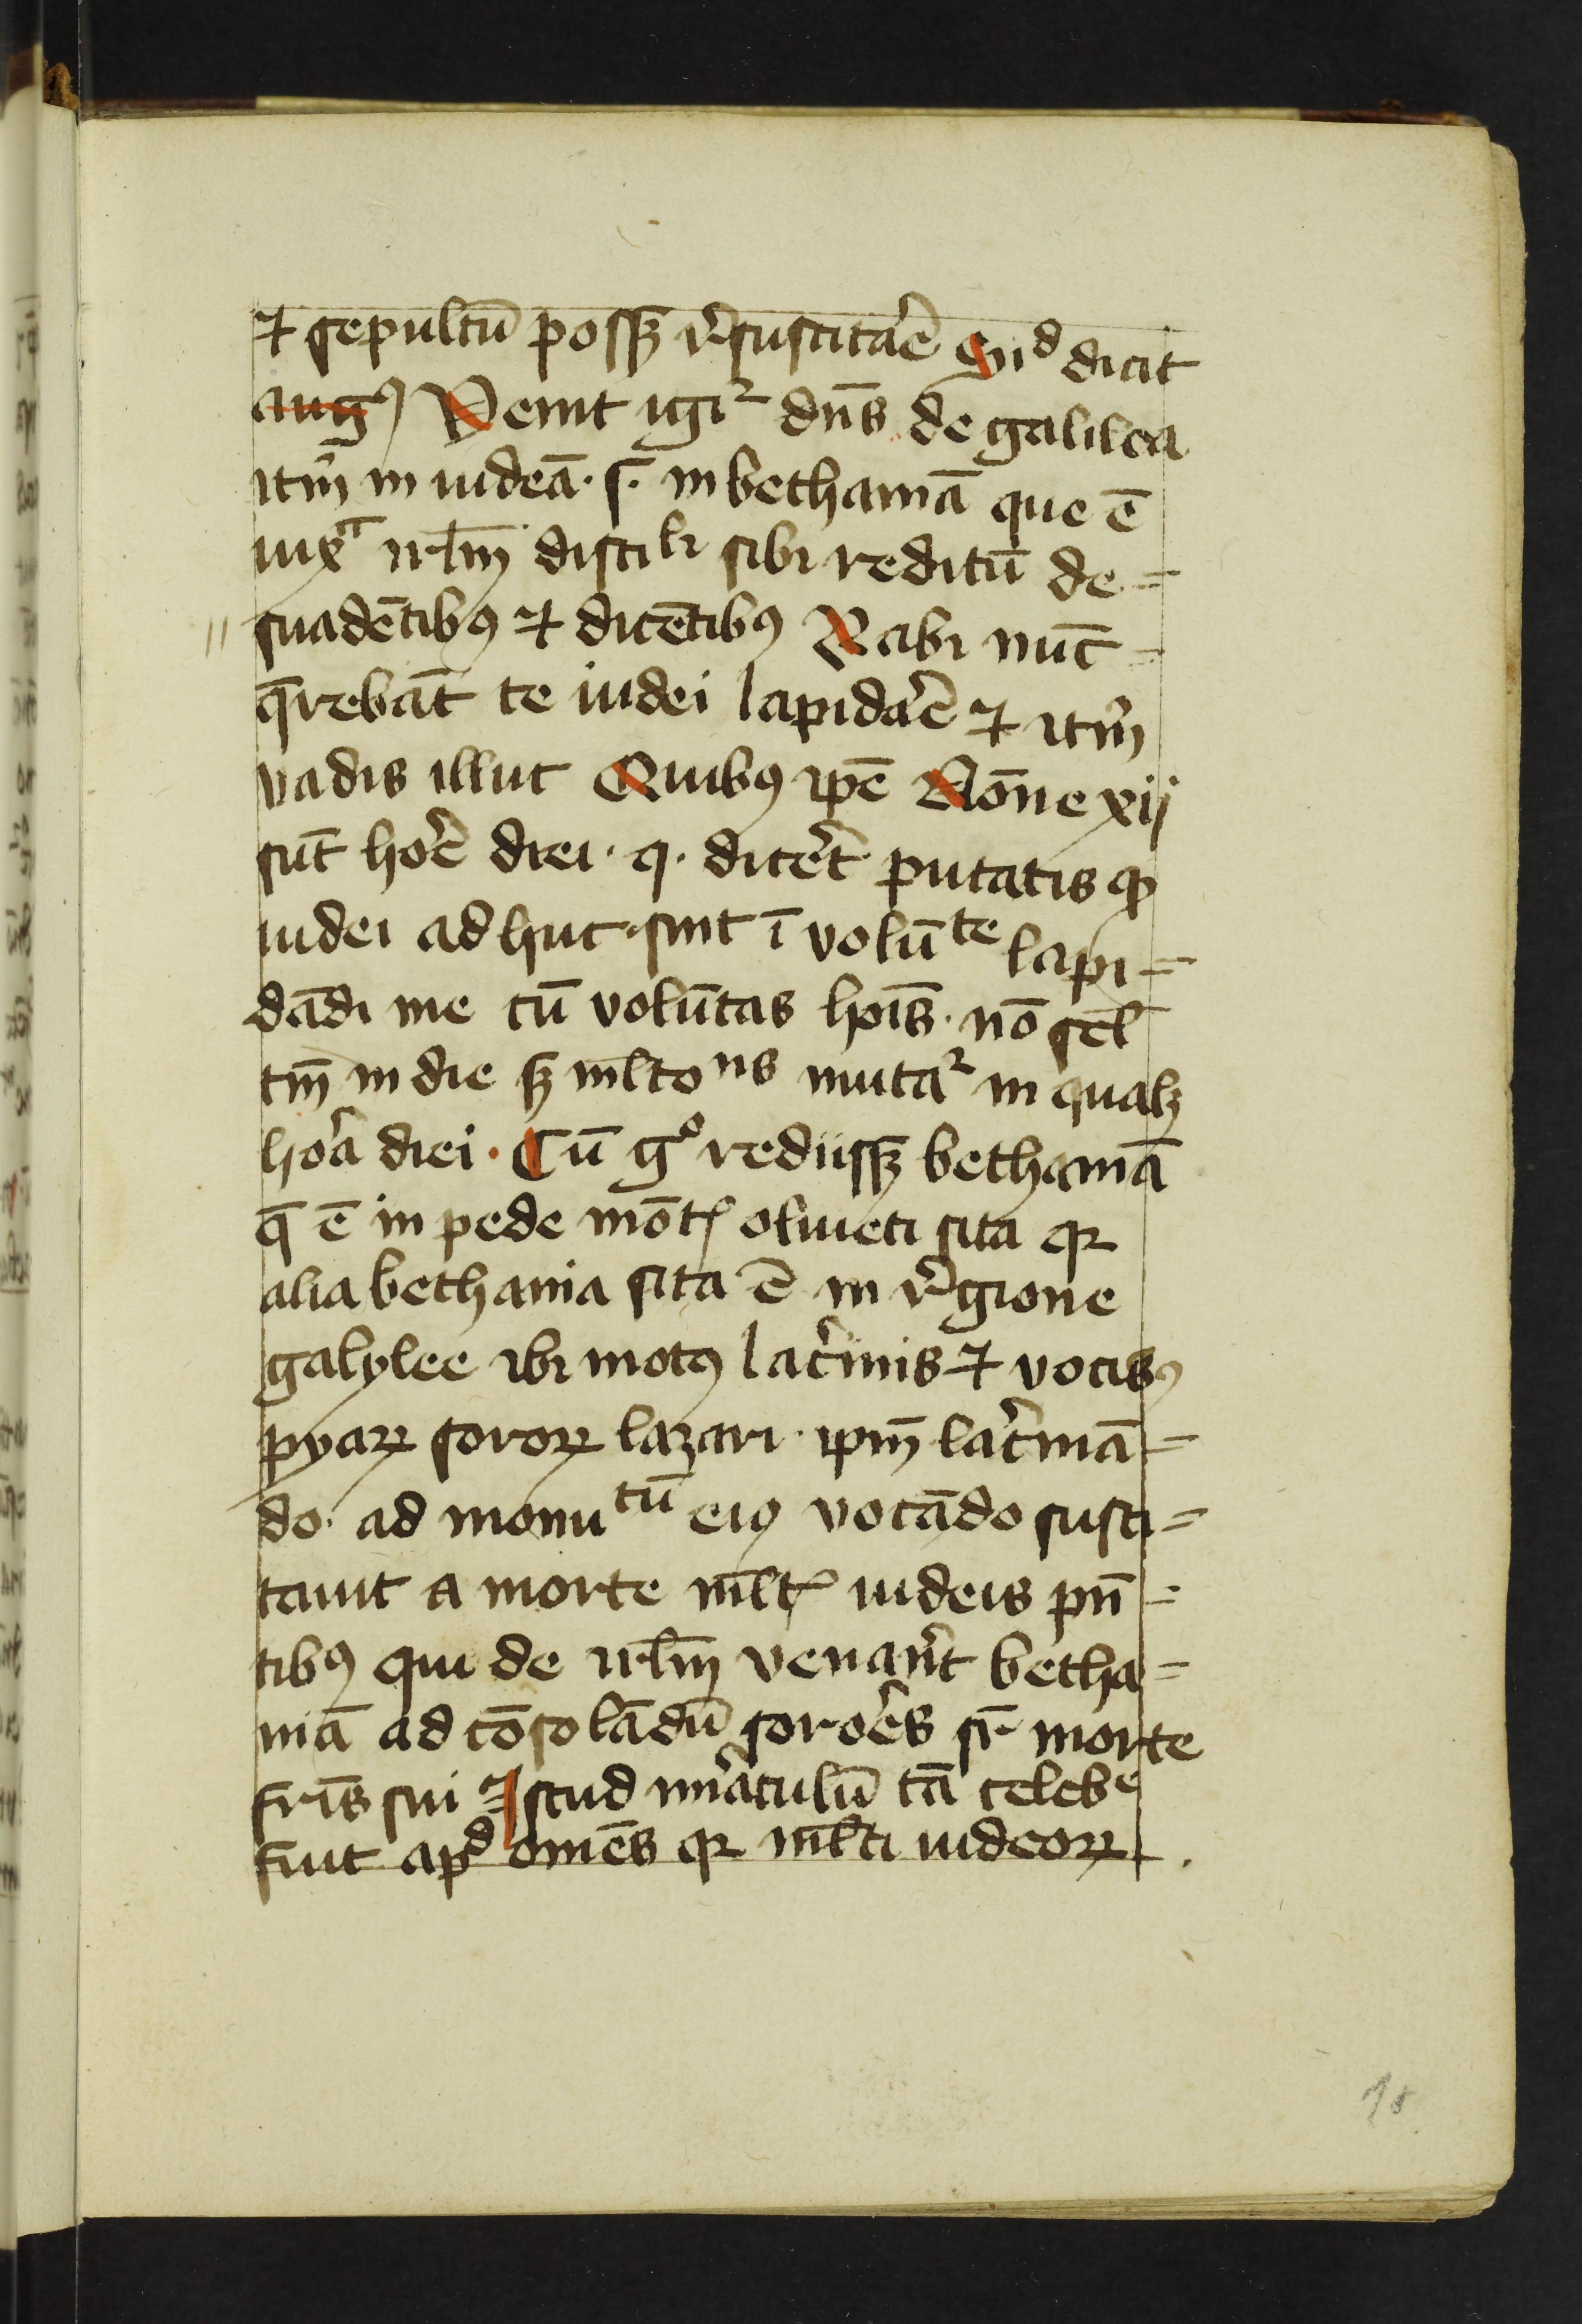 ⁊ sepultū possꝫ r̉suscitar̄e Hͥd dicit
augꝰ Venit igiᷣ dn̄s de galilea
itm̄ in iudeā · s · in bethaniā que ē
iuxᵃ irl̄m discilͥ sibi reditū de=
suadētibꝰ ⁊ dicētibꝰ Rabi nūc=
q̄rebāt te iudei lapidar̄e ⁊ itm̄
vadis illuc Quibꝰ ip̄e Nōne xij
sūt hor̄e diei · q · dicēt putatis ꝙ
iudei adhuc sint ī volūᵗᵉ lapi=
dādi me cū volūtas hoīs · nō sel̄
tm̄ in die sꝫ ml̄tocͥⁿˢ mutaᷣ in qualꝫ
hor̄a diei · Cū gͦ rediisꝫ bethaniā
q̄ ē in pede mōtꝭ oliueti sita qꝛ
alia bethania sita ē in r̉gione
galylee ibi motꝰ lac̉mis ⁊ vocibꝰ
pyaꝝ soroꝝ lazari · ip̄m lac̉mā=
do · ad monuᵗᵘ̄ eiꝰ vocādo susci=
tauit a morte ml̄tꝭ iudeis pn̄=
tibꝰ qui de irl̄m venan̉t betha=
niā ad cōsolādū soror̄es sr̄ morte
fr̄is sui Istud mir̉aculū tā celebᵉ
fuit apᵈ om̄es qꝛ ml̄ti iudeoꝝ
18